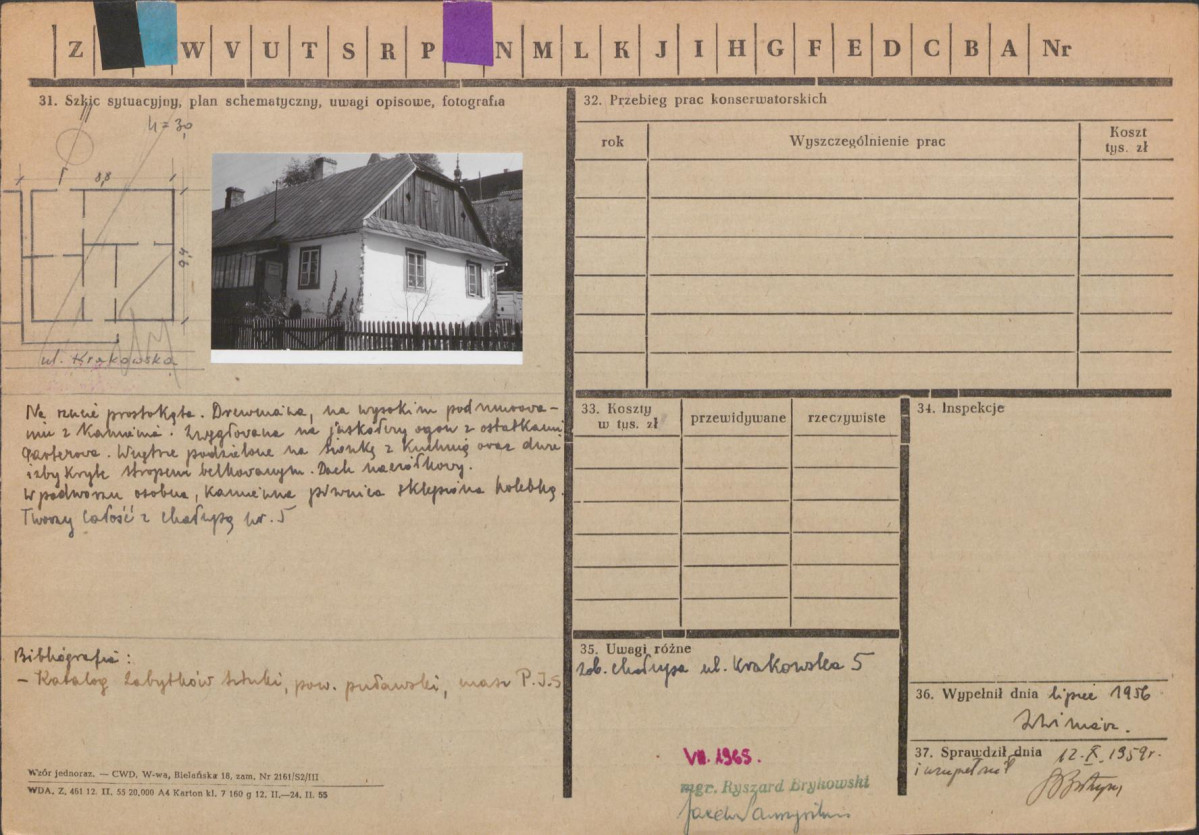 Z W V U T S R P N M L K J I H G F E D C B A Nr
31. Szkic sytuacyjny, plan schematyczny, uwagi opisowe, fotografia
h = 3,0
8,8
9,4
ul. Krakowska
Na rzucie prostokąta. Drewniana, na wysokim podmurowa-
niu z kamienia. Zwęgłowana na jaskółczy ogon z ostatkami
Wnętrze podzielone na sionkę z kuchnią oraz dwie
izby kryte stropem belkowanym. Dach naczółkowy.
W podwórzu osobna, kamienna piwnica sklepiona kolebką.
Tworzy całość z chałupą nr. 5
Bibliografia:
- Katalog Zabytków Sztuki, pow. puławski, masz P.I.S
Wzór jednoraz. — CWD, W-wa, Bielańska 18, zam. Nr 2161/S2/III
WDA, Z. 461 12. II. 55 20,000 A4 Karton kl. 7 160 g 12. II.—24. II. 55
32. Przebieg prac konserwatorskich
rok
Wyszczególnienie prac
Koszt
tys. zł
33. Koszty
w tys. zł
przewidywane
rzeczywiste
34. Inspekcje
35. Uwagi różne
zob. chałupa ul. Krakowska 5
VII. 1965.
mgr. Ryszard Brykowski
36. Wypełnił dnia lipiec 1956
37. Sprawdził dnia 12. X. 1959 r.
i uzupełnił